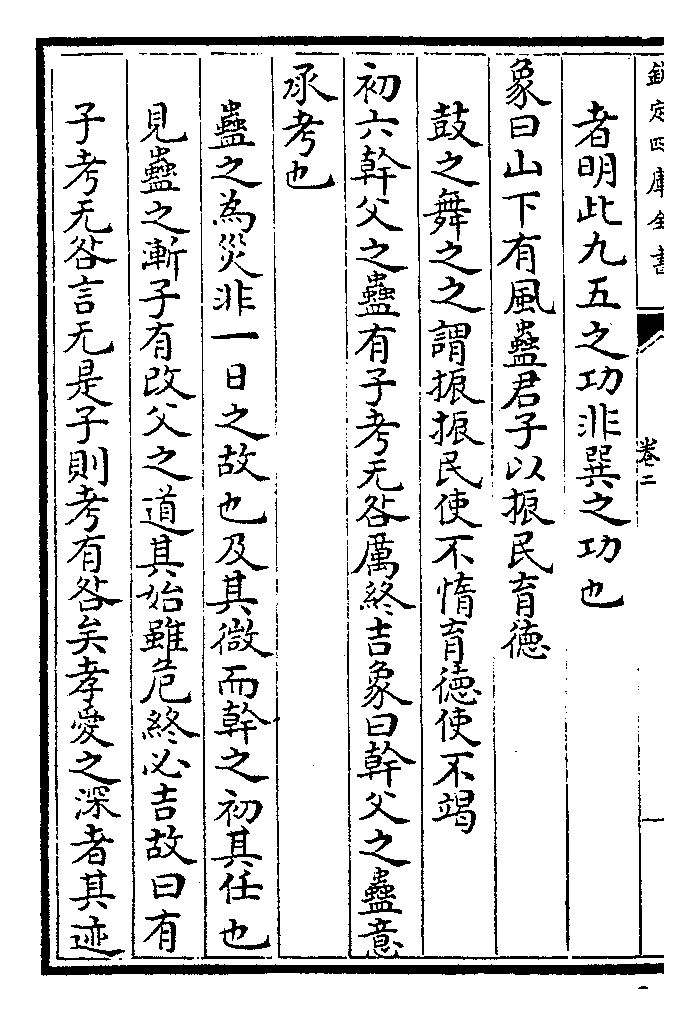 欽定四庫全書
卷二
者明此九五之功非巽之功也
象曰山下有風蠱君子以振民育德
鼓之舞之之謂振振民使不惰育德使不竭
初六幹父之蠱有子考无咎厲終吉象曰幹父之蠱意
承考也
蠱之為災非一日之故也及其微而幹之初其任也
見蠱之漸子有改父之道其始雖危終必吉故曰有
子考无咎言无是子則考有咎矣孝愛之深者其迹